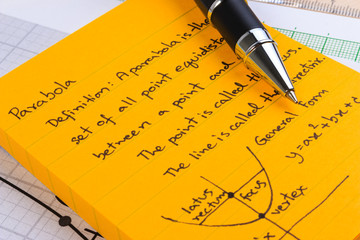 Parabola
Definition: A parabola is the
set of all point equidista
between a point and
The point is called the us
The line is called rectrix
General form
y=ax²+bx+
latus
rectum
focus
vertex